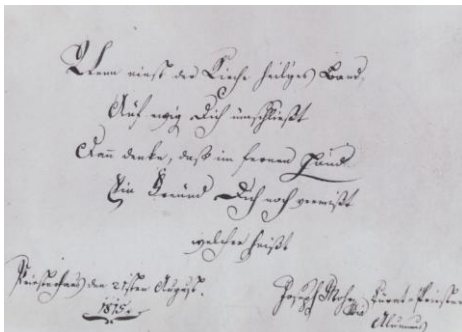 Wenn einst der Liebe heiliges Band
Auf ewig Dich umschließt
Dann denke, daß im fernen Land
Ein Freund Dich noch vermißt
welcher heißt
Priesterhaus den 21sten August.
1815.
Joseph Mohr Curat-Priester
Alumnus